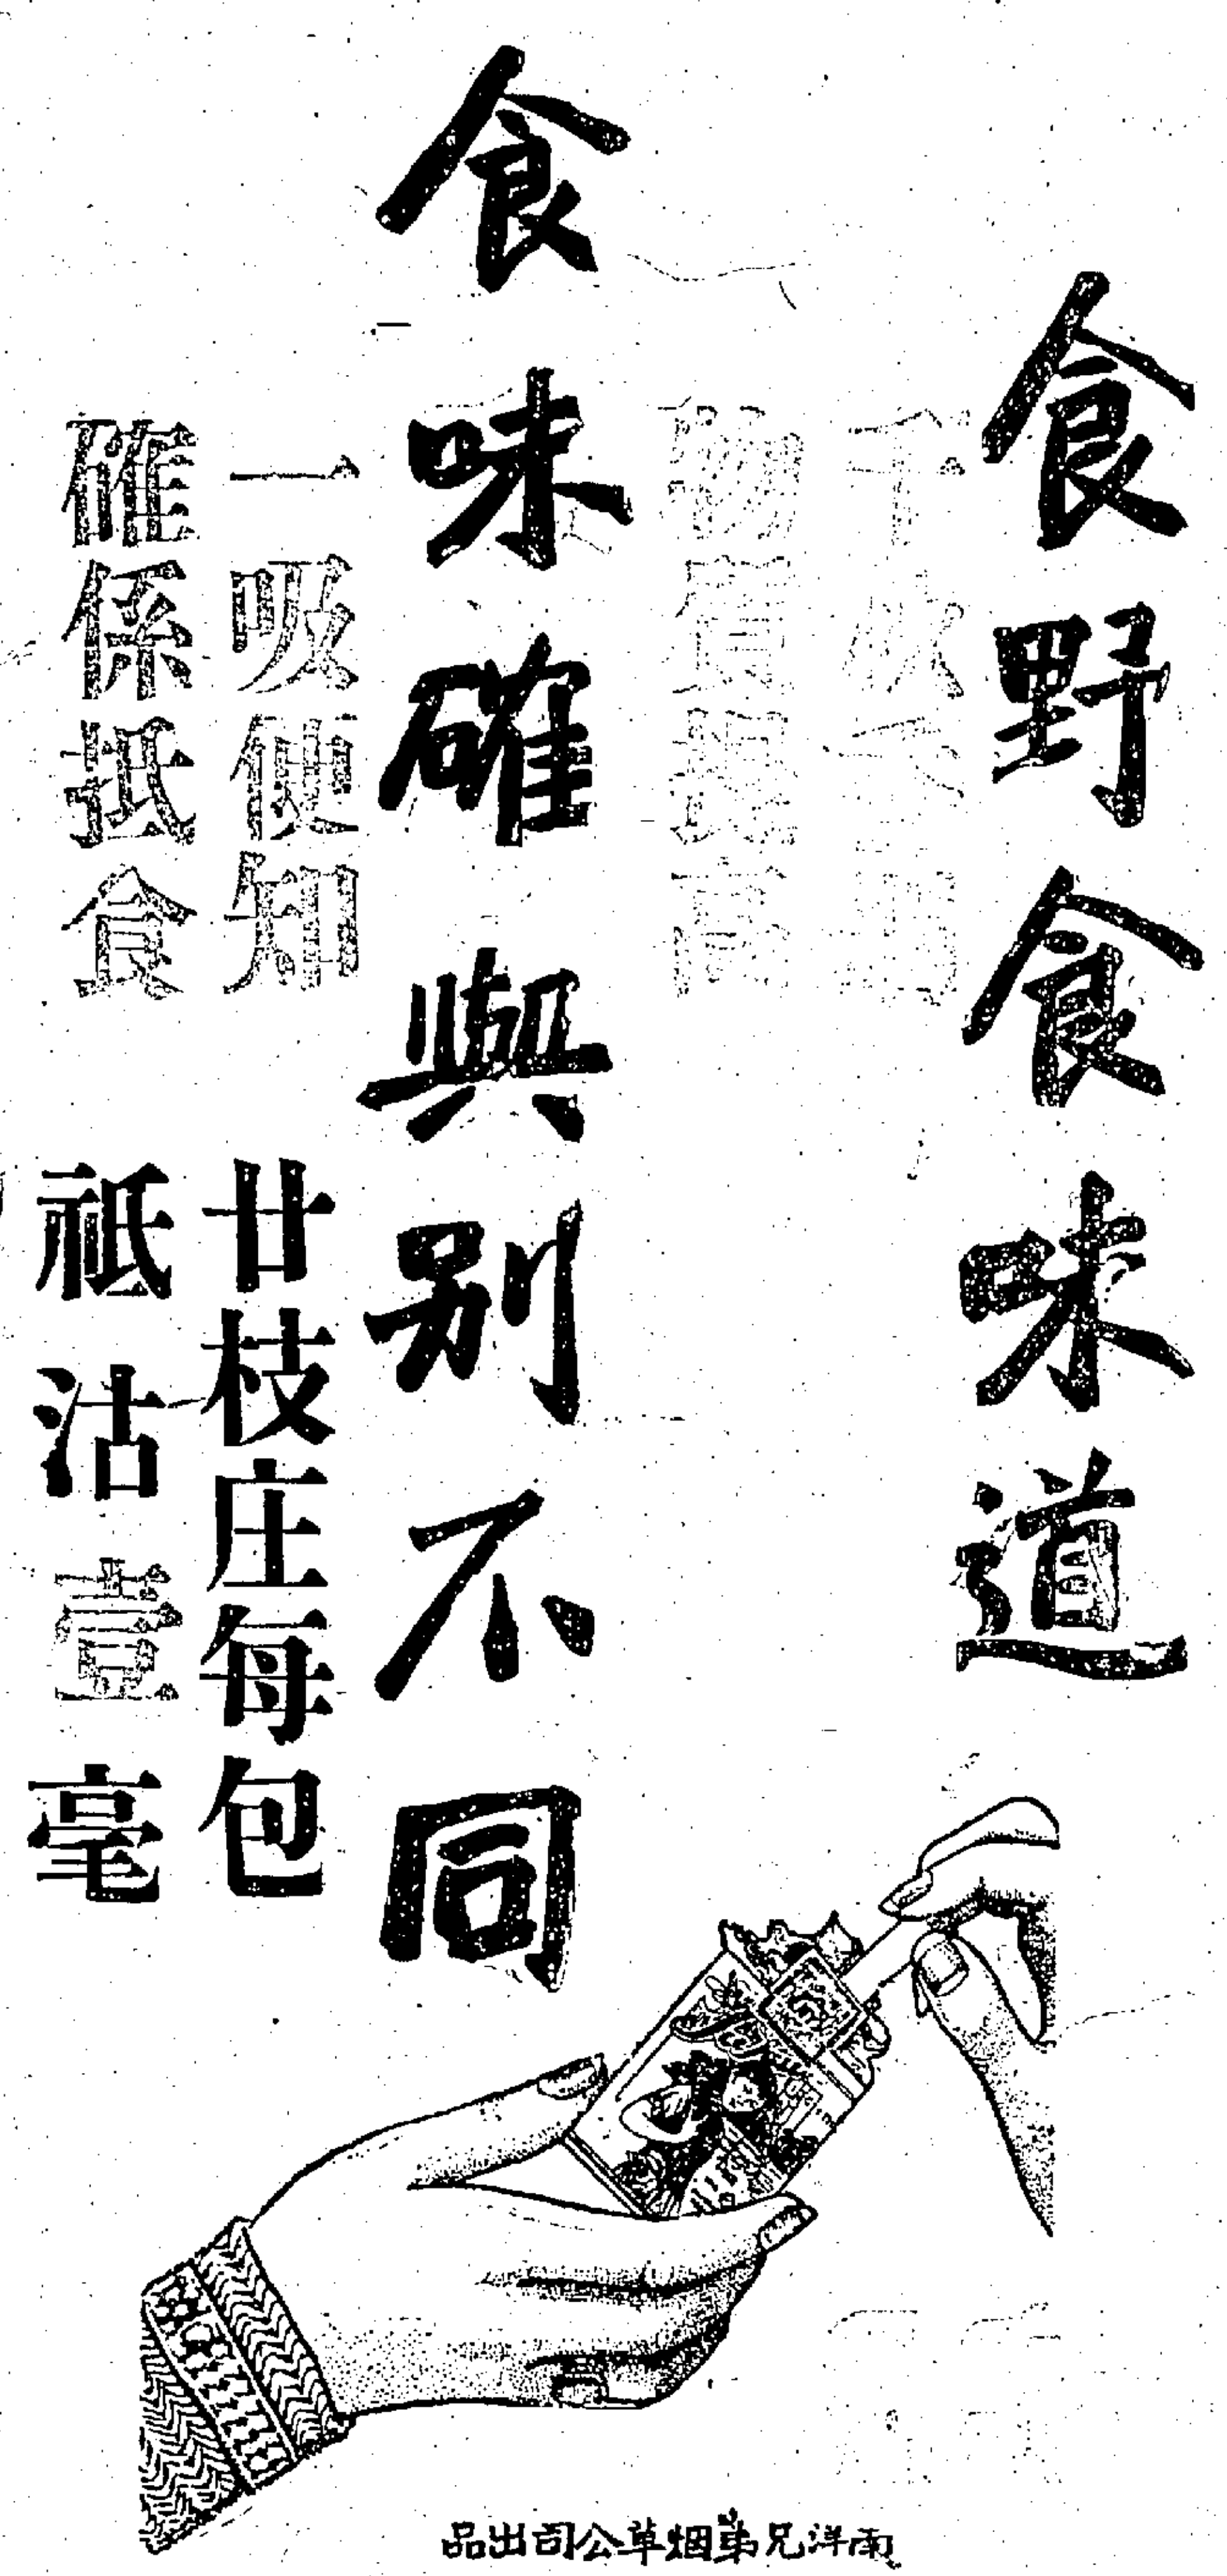 食野食味道
食味確與别不同
一吸便知
確係抵食
廿枝庄每包
祗沽壹毫
南洋兄弟烟草公司出品